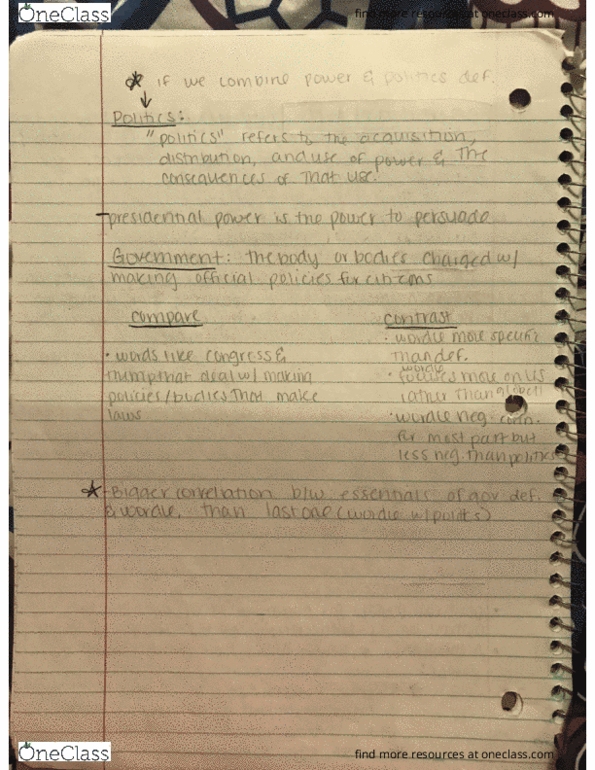 OneClass
find more resources at oneclass.com
if we combine power & politics def.
Politics:
"politics" refers to the acquisition,
distribution, and use of power & the
consequences of that use.
-presidential power is the power to persuade
Government: the body or bodies charged w/
making official policies for citizens
compare
contrast
· wordle more specific
than def.
· words like congress &
trump that deal w/ making
policies/bodies that make
laws
wordle
· focuses more on US
rather than global
· wordle neg. conn.
for most part but
less neg. than politics
-Bigger correlation b/w essentials of gov def.
& wordle, than last one (wordle w/ points)
OneClass
find more resources at oneclass.com